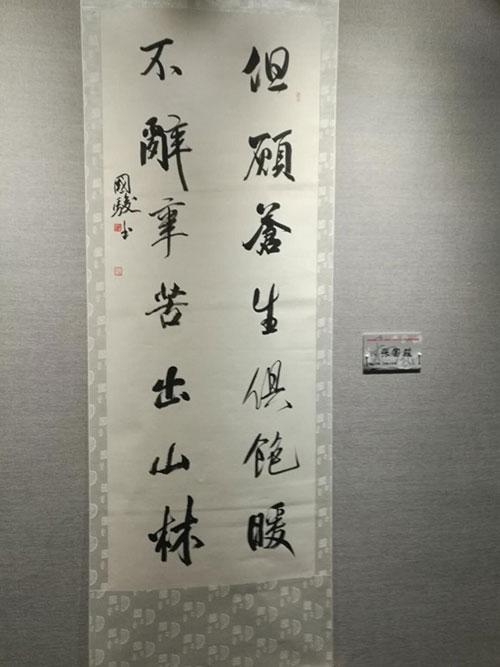 但願蒼生俱飽暖
不辭辛苦出山林
國駿书